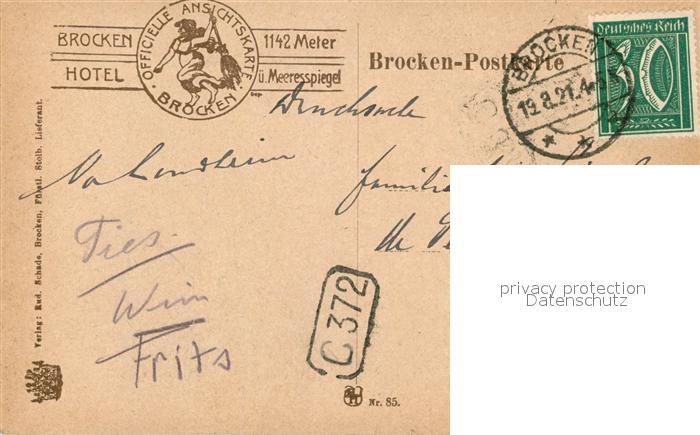 BROCKEN
HOTEL
OFFICIELLE ANSICHTSKARTE
BROCKEN
1142 Meter
ü. Meeresspiegel
Brocken-Postkarte
BROCKEN
19.8.21. 4-
Deutsches Reich
Drucksache
familie
Ties.
Wim
Frits
C 372
Verlag: Rud. Schade, Brocken, Fürstl. Stolb. Lieferant.
Nr. 85.
privacy protection
Datenschutz